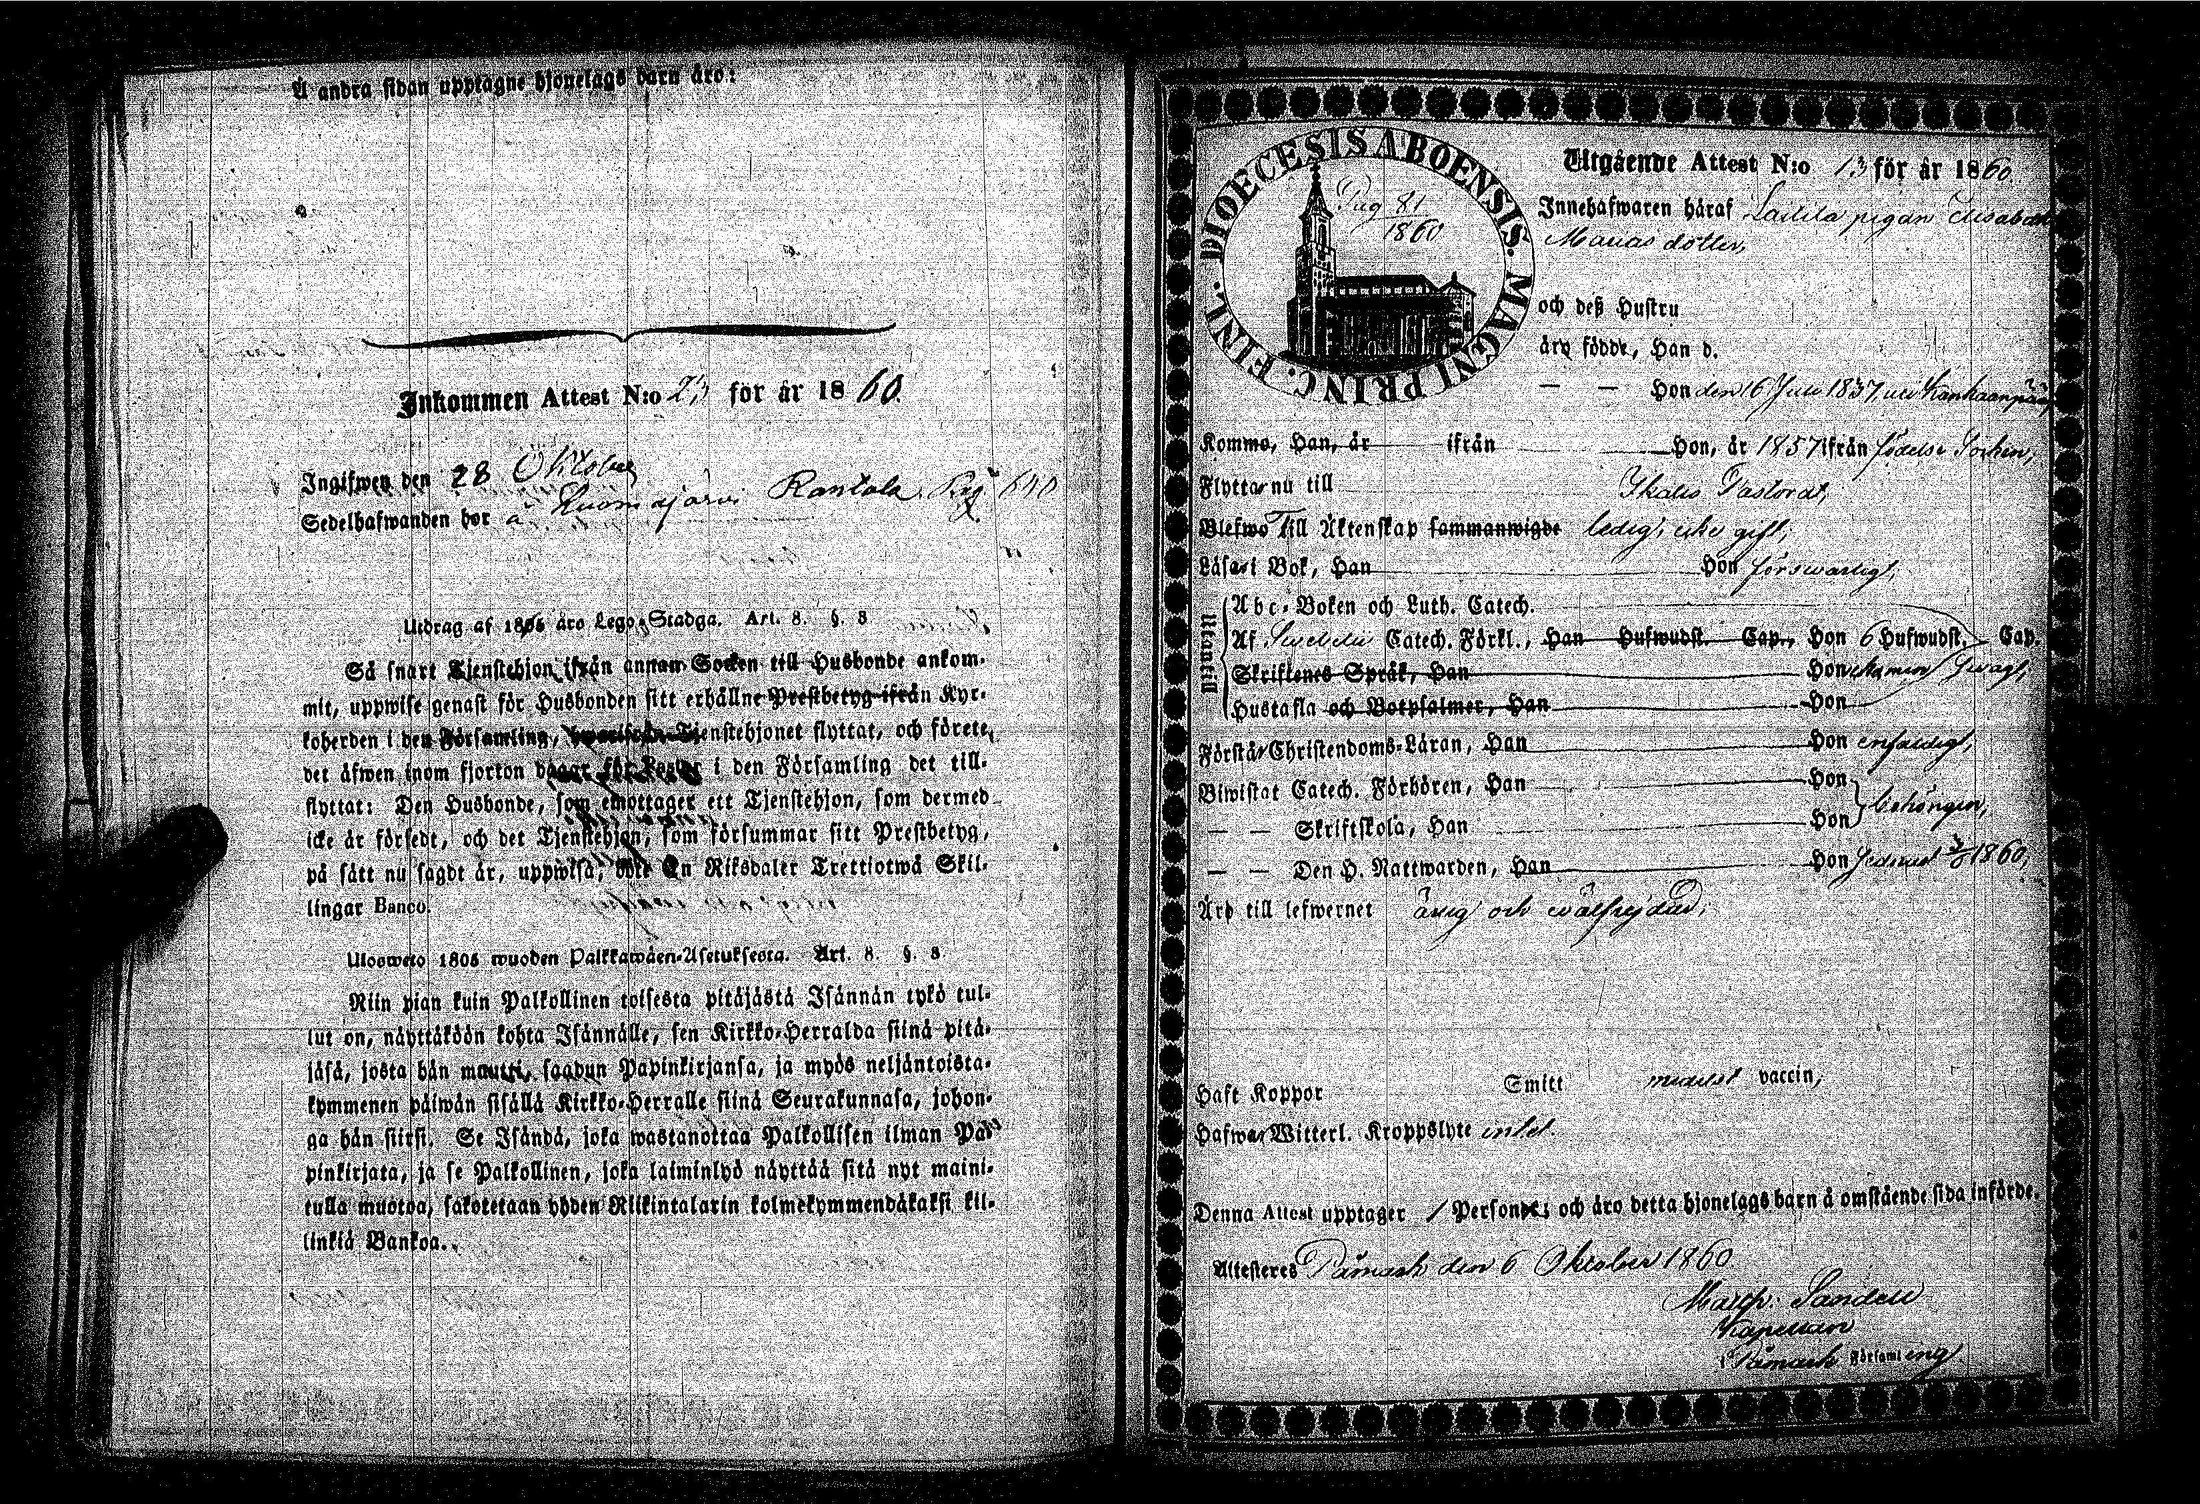 Å andra sidan upptagne hjonelags barn äro:
Inkommen Attest N:o 23 för år 1860.
Ingifwen den 28 Oktober
Sedelhafwanden bor å Kuorasjärvi Rantala Pag 640
Utdrag af 1805 års Lego-Stadga. Art. 8. §. 8
Så snart Tjenstehjon ifrån annan Socken till Husbonde ankom-
mit, uppwise genast för Husbonden sitt erhållne Prestbetyg ifrån Kyr-
koherden i den Församling, hwarifrån Tjenstehjonet flyttat, och förete
det äfwen inom fjorton dagar för Pastor i den Församling det till-
flyttat: Den Husbonde, som emottager ett Tjenstehjon, som dermed
icke är försedt, och det Tjenstehjon, som försummar sitt Prestbetyg,
på sätt nu sagdt är, uppwisa, böte En Riksdaler Trettiotwå Skil-
lingar Banco.
Ulosweto 1805 wuoden Palkkawäen-Asetuksesta. Art. 8. §. 8
Niin pian kuin Palkollinen toisesta pitäjästä Isännän tykö tul-
lut on, näyttäköön kohta Isännälle, sen Kirkko-Herralda siinä pitä-
jäsä, josta hän muutti, saadun Papinkirjansa, ja myös neljäntoista-
kymmenen päiwän sisällä Kirkko-Herralle siinä Seurakunnasa, johon-
ga hän siirsi. Se Isändä, joka wastanottaa Palkollisen ilman Pa-
pinkirjata, ja se Palkollinen, joka laiminlyö näyttää sitä nyt maini-
tulla muotoa, sakotetaan yhden Riikintalarin kolmekymmendäkaksi kil-
linkiä Bankoa.
DIOECESIS ABOENSIS. MAGNI PRINC. FINL.
Pag 81
1860
Utgående Attest N:o 13 för år 1860.
Innehafwaren häraf Laitila pigan Elisabeth
Mariasdotter,
och deß Hustru
äro födde, Han d.
— — Hon den 16 Juli 1837, uti Kankaanpää,
Komme, Han, år ifrån Hon, år 1857 ifrån födelse Socken,
Flyttar nu till Ikalis Pastorat,
Blefwo Till Äktenskap sammanwigde ledig, icke gift,
Läsa i Bok, Han Hon förswarligt,
Utantill
Abc-Boken och Luth. Catech.
Af Svebelii Catech. Förkl., Han Hufwudst. Cap., Hon 6 Hufwudst, Cap.
Skriftenes Språk, Han Hon examen swagt,
Hustafla och Botpsalmer, Han Hon
Förstår Christendoms-Läran, Han Hon enfaldigt,
Biwistat Catech. Förhören, Han Hon
behörigen,
— — Skriftskola, Han Hon
— — Den H. Nattwarden, Han Hon senast 1860,
Äro till lefwernet ärlig och wälfrejdad;
Haft Koppor Smitt medelst vaccin,
Hafwa Witterl. Kroppslyte intet.
Denna Attest upptager 1 Persone; och äro detta hjonelags barn å omstående sida införde.
Attesteres Påmark den 6 Oktober 1860.
Sandell
Kapellan
i Påmark Församling